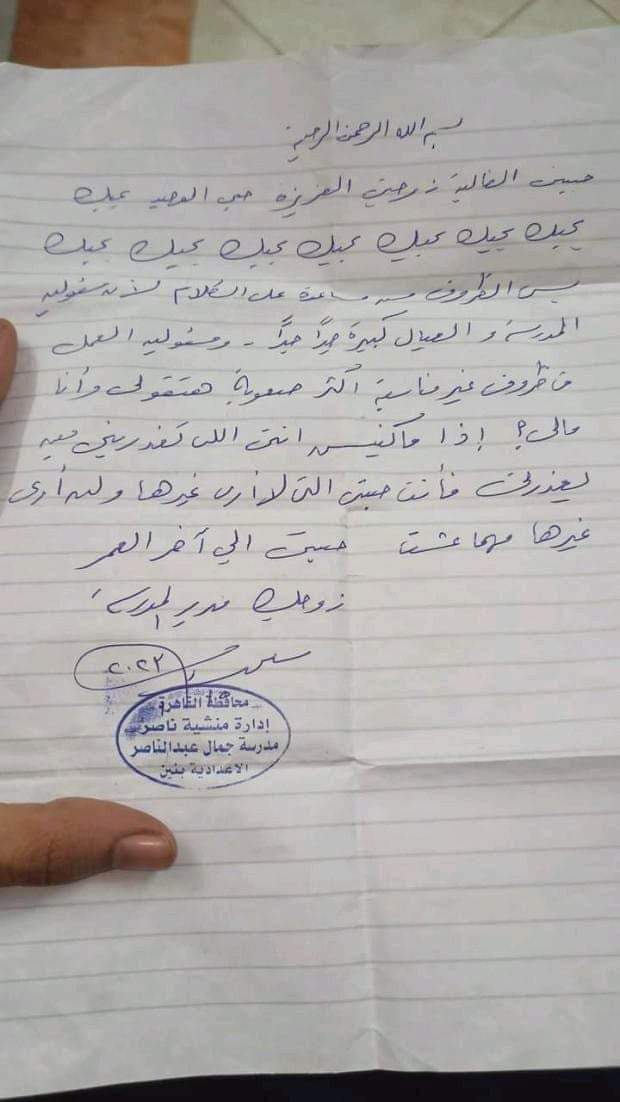 بسم الله الرحمن الرحيم
حبيبتى الغالية زوجتى العزيزة حبى الوحيد بحبك
بحبك بحبك بحبك بحبك بحبك بحبك بحبك
بس الظروف مش مساعدة على الكلام لأن مسئولية
المدرسة و العيال كبيرة جدًا جدًا - ومسئولية العمل
فى ظروف غير مناسبة أكثر صعوبة هتقولى وأنا
مالى؟ إذا ماكنتيش انتى اللى تعذرينى مين
يعذرنى فأنت حبيبتى التى لا أرى غيرها ولن أرى
غيرها مهما عشت حبيبتى الي آخر العمر
زوجك مدير المدرسة
٢٠٢٣
محافظة القاهرة
إدارة منشية ناصر
مدرسة جمال عبدالناصر
الاعدادية بنين